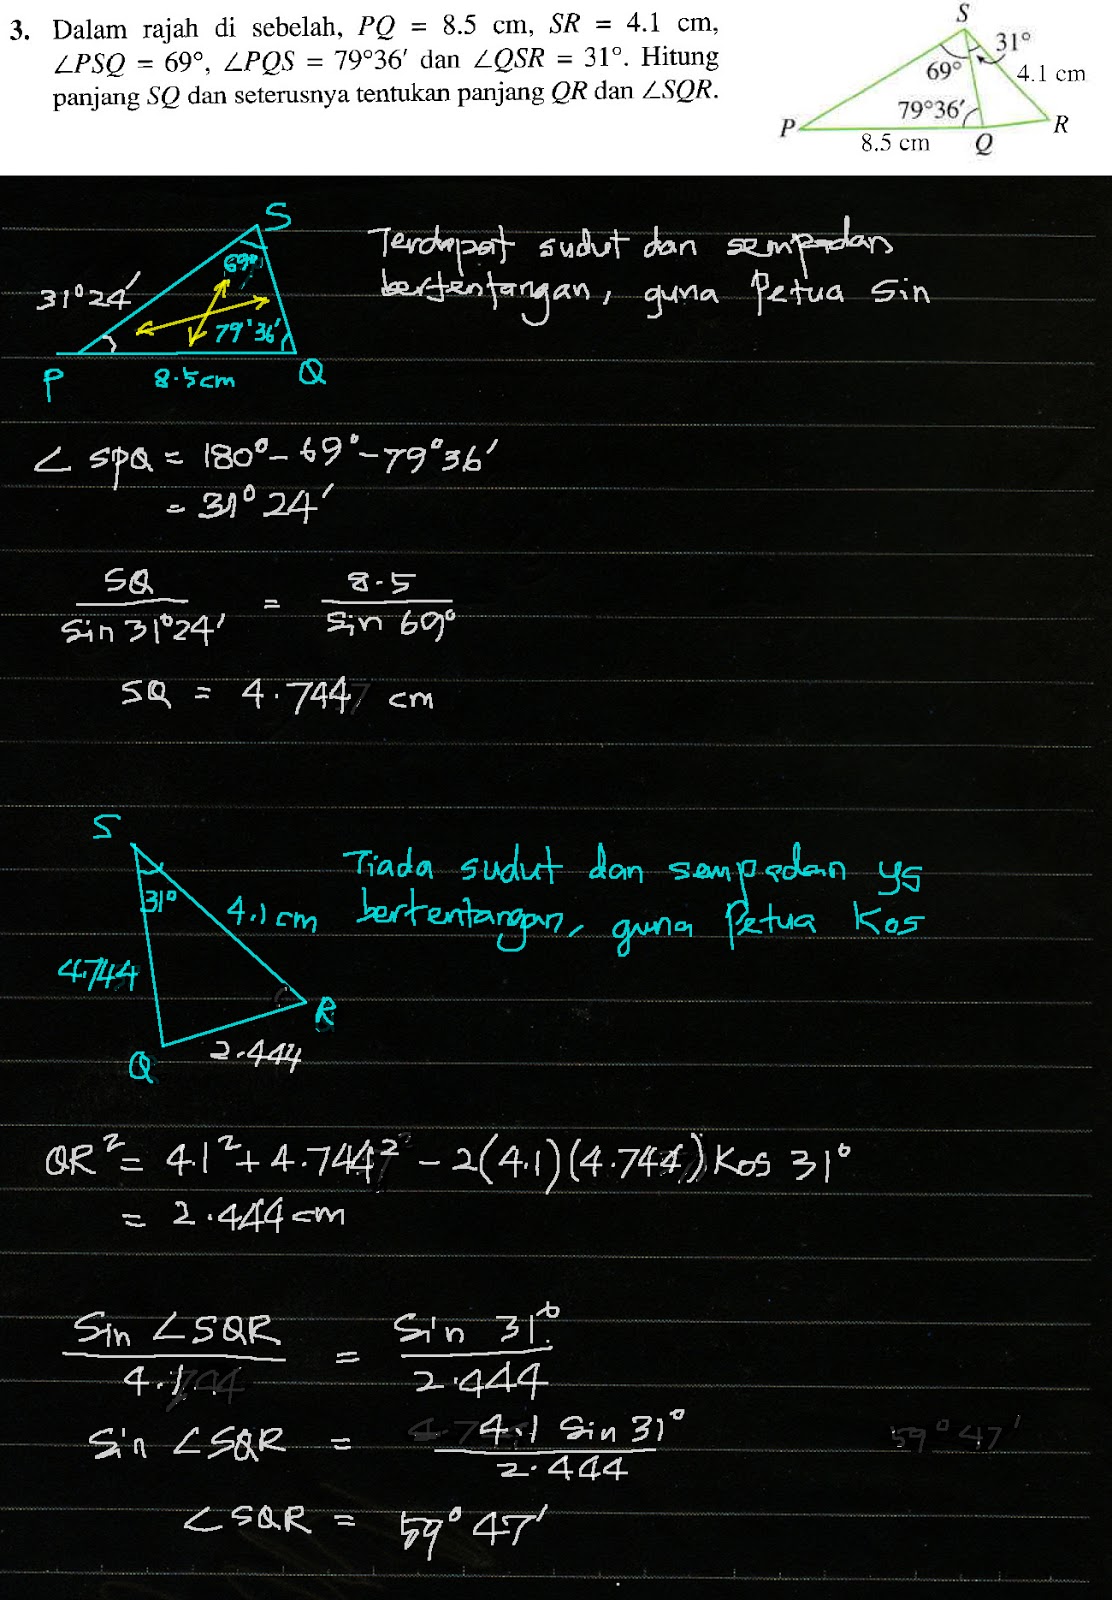 3. Dalam rajah di sebelah, PQ = 8.5 cm, SR = 4.1 cm,
∠PSQ = 69°, ∠PQS = 79°36′ dan ∠QSR = 31°. Hitung
panjang SQ dan seterusnya tentukan panjang QR dan ∠SQR.
S
31°
69°
4.1 cm
79°36′
P
R
8.5 cm
Q
S
69°
31°24′
79°36′
P
8.5cm
Q
Terdapat sudut dan sempadan
bertentangan, guna Petua Sin
∠ SPQ = 180° - 69° - 79°36′
= 31°24′
SQ / sin 31°24′ = 8.5 / sin 69°
SQ = 4.744 cm
S
31°
4.1cm
4.744
R
2.444
Q
Tiada sudut dan sempadan yg
bertentangan, guna Petua Kos
QR² = 4.1² + 4.744² - 2(4.1)(4.744) Kos 31°
= 2.444 cm
Sin ∠SQR / 4.1 = Sin 31° / 2.444
Sin ∠SQR = 4.1 Sin 31° / 2.444
59°47′
∠SQR = 59°47′